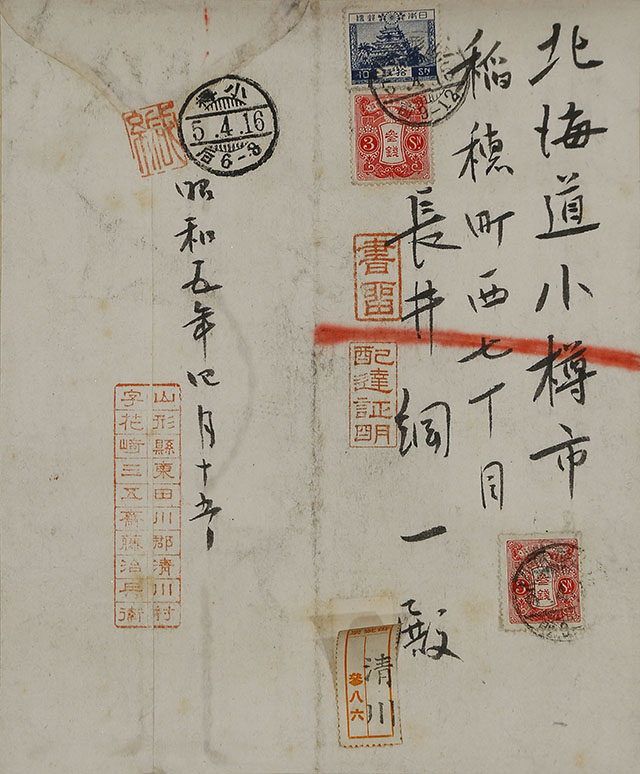 北海道小樽市
稲穂町西七丁目
長井綱一殿
書留
配達証明
大日本帝國郵便
10 拾銭 Sn
3 参銭 Sn
3 参銭 Sn
清川
参八六
小樽
5.4.16
后6-8
昭和五年四月十五日
山形縣東田川郡清川村
字花崎三五齋藤治兵衛